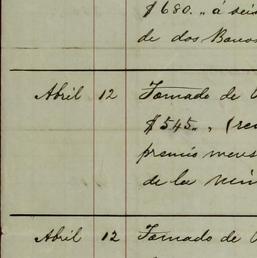 $680.,, á seis
de dos Banos
Abril 12 Tomado de
$545.,, (
premio mens
de la
Abril 12 Tomado de